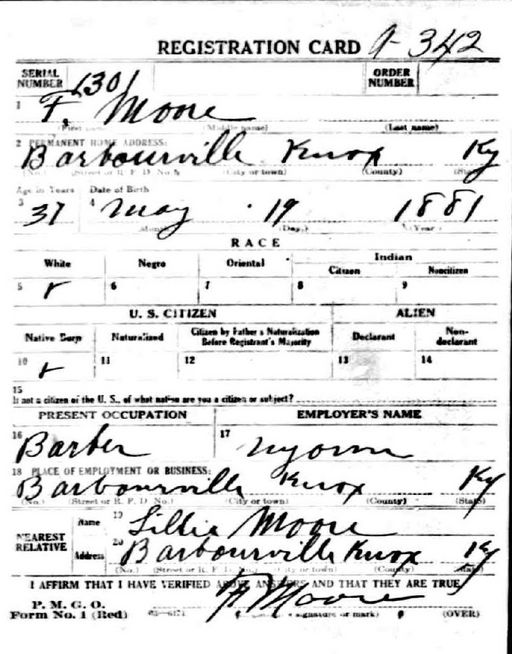 REGISTRATION CARD A-342
SERIAL NUMBER 1301 ORDER NUMBER
1 F, Moore
(First name) (Middle name) (Last name)
2 PERMANENT HOME ADDRESS:
Barbourville Knox Ky
(No.) (Street or R. F. D. No.) (City or town) (County) (State)
Age in Years Date of Birth
3 37 4 May 19 1881
(Month) (Day) (Year)
RACE
White Negro Oriental Indian
Citizen Noncitizen
5 6 7 8 9
U. S. CITIZEN ALIEN
Native Born Naturalized Citizen by Father's Naturalization Before Registrant's Majority Declarant Non-declarant
10 11 12 13 14
15
Is not a citizen of the U. S., of what nation are you a citizen or subject?
PRESENT OCCUPATION EMPLOYER'S NAME
16 Barber 17
18 PLACE OF EMPLOYMENT OR BUSINESS:
Barbourville Knox Ky
(No.) (Street or R. F. D. No.) (City or town) (County) (State)
NEAREST RELATIVE Name 19 Lillie Moore
Address 20 Barbourville Knox Ky
(No.) (Street or R. F. D. No.) (City or town) (County) (State)
I AFFIRM THAT I HAVE VERIFIED ABOVE ANSWERS AND THAT THEY ARE TRUE
P. M. G. O.
Form No. 1 (Red) F Moore
signature or mark) (OVER)